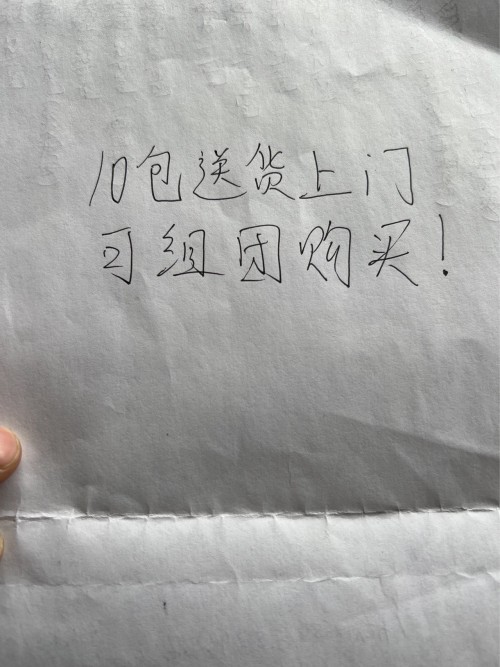 10包送货上门
可组团购买!